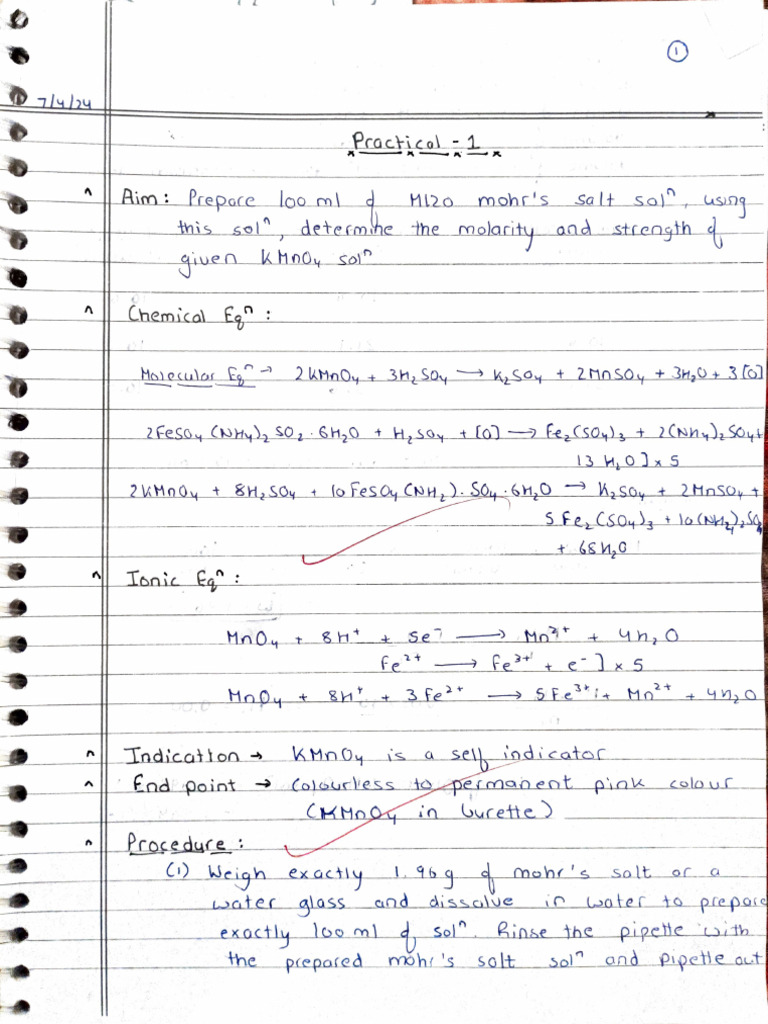 1
7/4/24
Practical - 1
Aim: Prepare 100 ml of M120 mohr's salt solⁿ, using
this solⁿ, determine the molarity and strength of
given KMnO₄ solⁿ
Chemical Eqⁿ:
Molecular Eqⁿ → 2KMnO₄ + 3H₂SO₄ → K₂SO₄ + 2MnSO₄ + 3H₂O + 3[O]
2FeSO₄(NH₄)₂SO₂·6H₂O + H₂SO₄ + [O] → Fe₂(SO₄)₃ + 2(NH₄)₂SO₄+
13 H₂O] x 5
2KMnO₄ + 8H₂SO₄ + 10FeSO₄(NH₂)·SO₄·6H₂O → K₂SO₄ + 2MnSO₄ +
5Fe₂(SO₄)₃ + 10(NH₄)₂SO₄
+ 68H₂O
Ionic Eqⁿ:
MnO₄ + 8H⁺ + 5e⁻ → Mn²⁺ + 4H₂O
Fe²⁺ → Fe³⁺ + e⁻] x 5
MnO₄ + 8H⁺ + 3Fe²⁺ → 5Fe³⁺ + Mn²⁺ + 4H₂O
Indication → KMnO₄ is a self indicator
End point → Colourless to permanent pink colour
(KMnO₄ in burette)
Procedure:
(1) Weigh exactly 1.96g of mohr's salt or a
water glass and dissolve in water to prepare
exactly 100 ml of solⁿ. Rinse the pipette with
the prepared mohr's salt solⁿ and pipette out